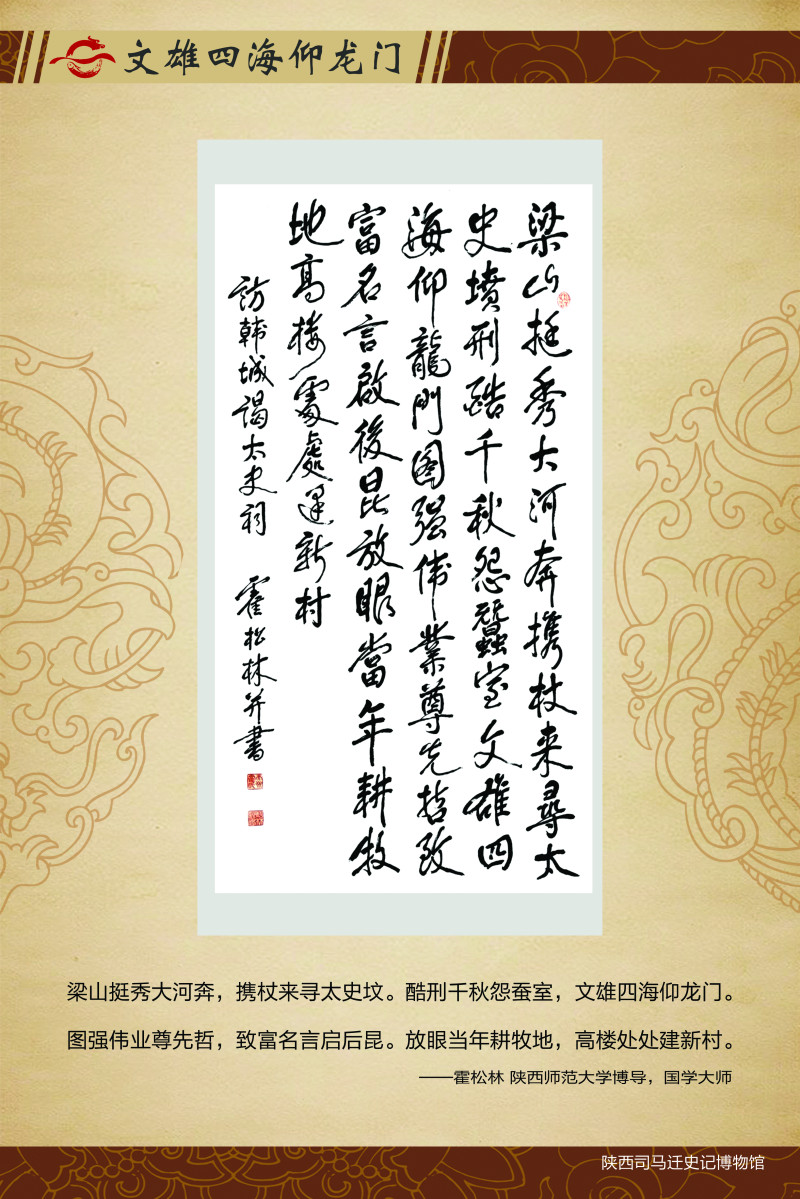 文雄四海仰龙门
梁山挺秀大河奔携杖来尋太
史墳刑酷千秋怨蠶室文雄四
海仰龍門图强伟業尊先哲致
富名言啟後昆放眼當年耕牧
地高楼處處建新村
訪韩城謁太史祠 霍松林并書
梁山挺秀大河奔，携杖来寻太史坟。酷刑千秋怨蚕室，文雄四海仰龙门。
图强伟业尊先哲，致富名言启后昆。放眼当年耕牧地，高楼处处建新村。
——霍松林 陕西师范大学博导，国学大师
陕西司马迁史记博物馆